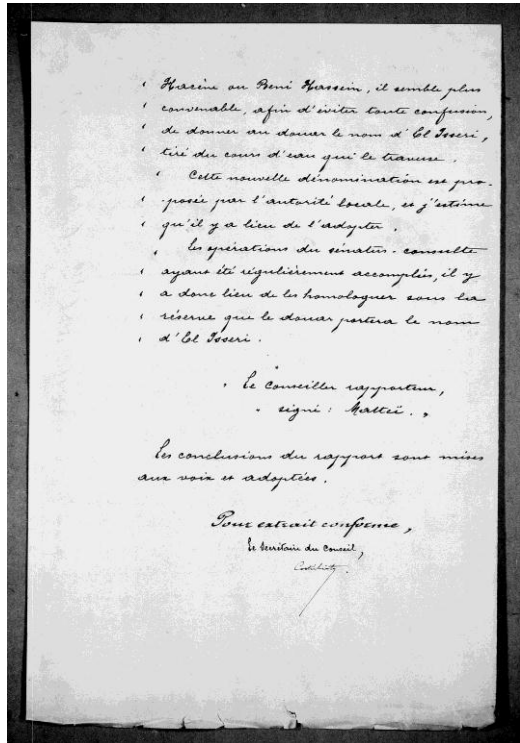 « Hacène ou Beni Hassein, il semble plus
« convenable, afin d'éviter toute confusion,
« de donner au douar le nom d'El Isseri,
« tiré du cours d'eau qui le traverse.
« Cette nouvelle dénomination est pro-
« posée par l'autorité locale, et j'estime
« qu'il y a lieu de l'adopter.
« Les opérations du sénatus-consulte
« ayant été régulièrement accomplies, il y
« a donc lieu de les homologuer sous la
« réserve que le douar portera le nom
« d'El Isseri.
« Le Conseiller rapporteur,
« signé : Mattei. »
Les conclusions du rapport sont mises
aux voix et adoptées.
Pour extrait conforme,
Le Secrétaire du Conseil,